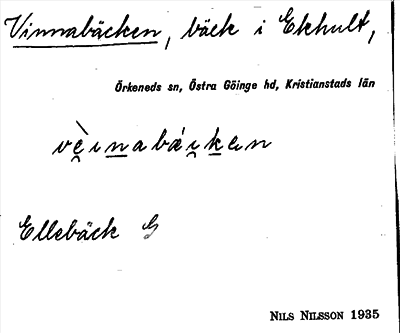 Vinnabäcken, bäck i Ekhult,
Örkeneds sn, Östra Göinge hd, Kristianstads län
vè̯ın̲abá̯ı̯k̲en
Ellebäck G
NILS NILSSON 1935